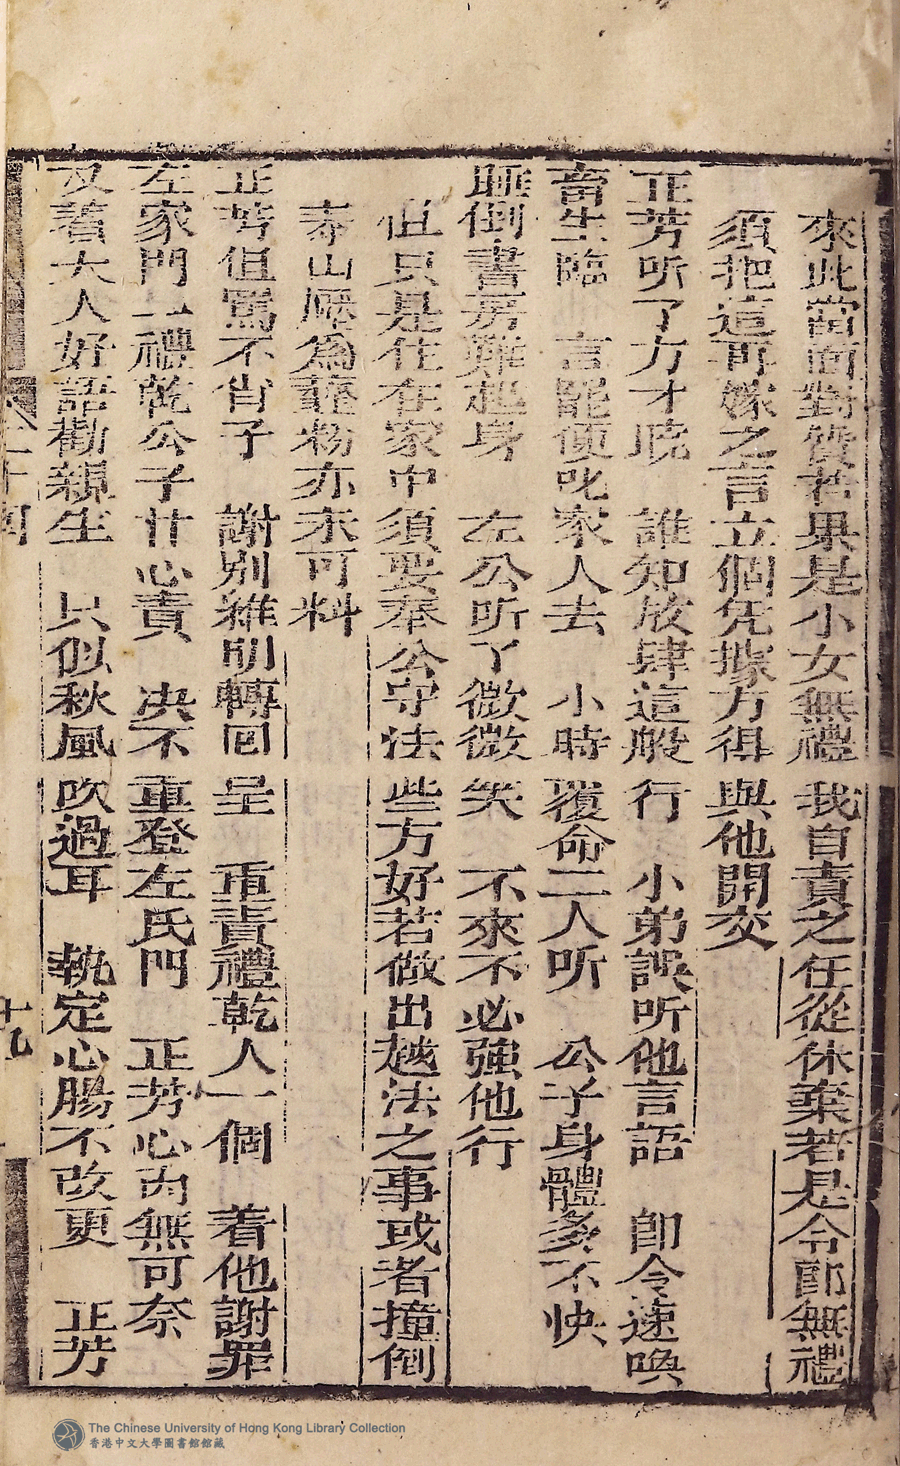 來此當面對質若果是小女無禮我自責之任從休棄若是令郎無禮
須把這再嫁之言立個凭據方得與他開交
正芳听了方才暁 誰知放肆這般行 小弟誤听他言語 即令速喚
畜生臨 言罷便叱家人去 小時覆命二人听 公子身體多不快
睡倒書房難起身 左公听了微微笑 不來不必強他行
但只是住在家中須要奉公守法些方好若做出越法之事或者撞倒
泰山壓為虀粉亦未可料
正芳但罵不肖子 謝別維明轉回呈 重責禮乾人一個 着他謝罪
左家門 禮乾公子甘心責 决不重登左氏門 正芳心内無可奈
又着大人好語勸親生 只似秋風吹過耳 執定心腸不改更 正芳
二十回
十九
The Chinese University of Hong Kong Library Collection
香港中文大學圖書館館藏